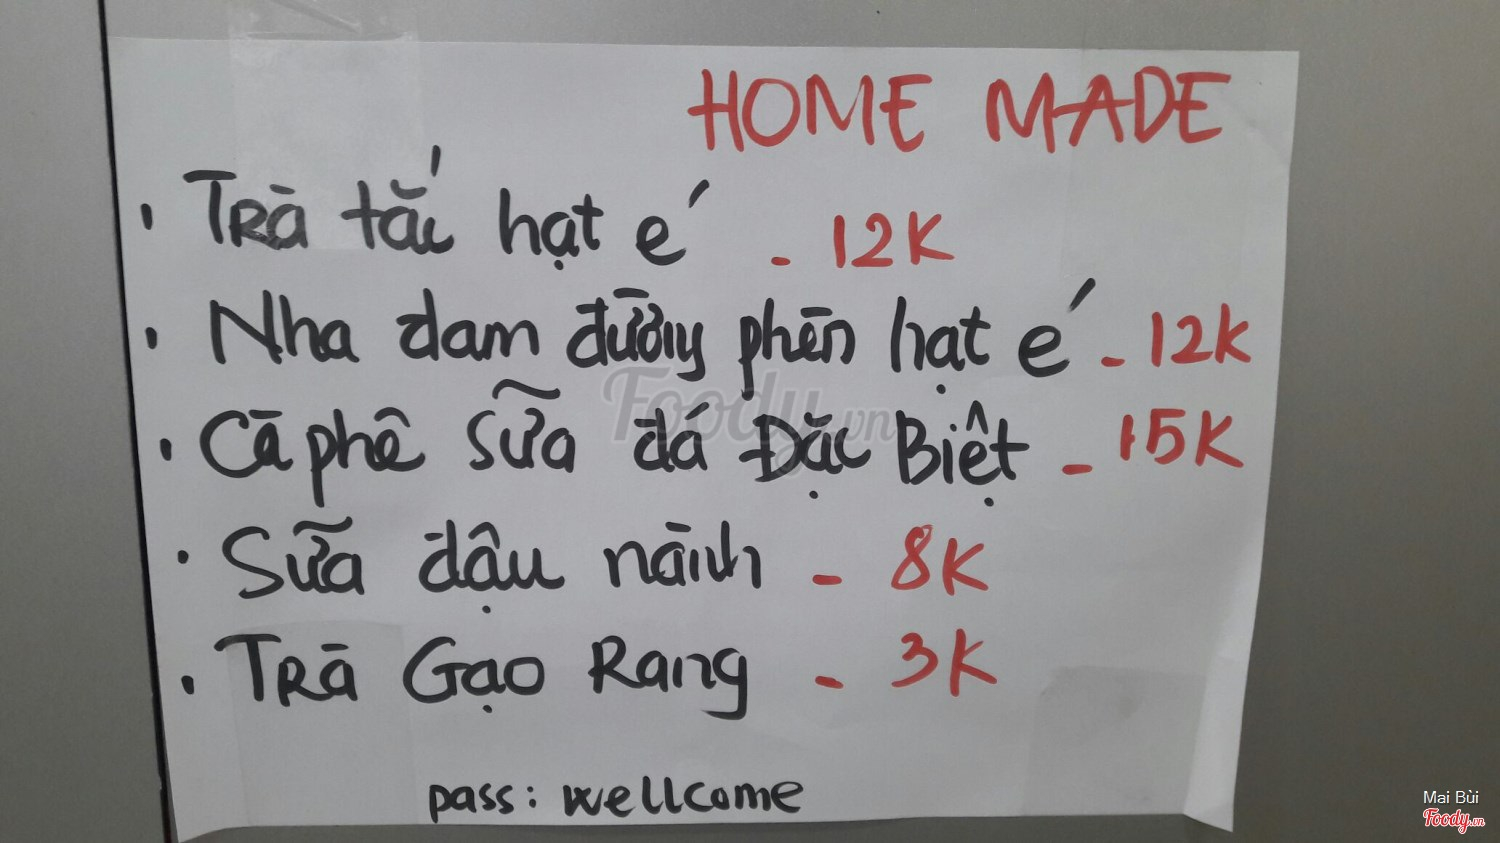 HOME MADE
• Trà tắc hạt é - 12K
• Nha đam đường phèn hạt é - 12K
• Cà phê sữa đá Đặc Biệt - 15K
• Sữa đậu nành - 8K
• Trà Gạo Rang - 3K
pass: wellcome
Foody.vn
Mai Bùi
Foody.vn